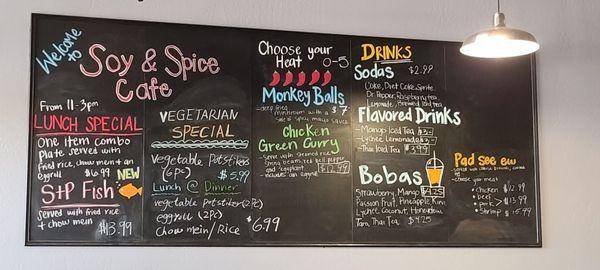 Welcome
to
Soy & Spice
Cafe
From 11-3pm
LUNCH SPECIAL
One item combo
plate served with
fried rice, chow mein & an
eggroll $16.99
NEW
S+P Fish
Served with fried rice
& chow mein
$13.99
VEGETARIAN
SPECIAL
Vegetable Potstickers
(6pc) $5.99
Lunch @ Dinner
vegetable potsticker (2pc)
eggroll (2pc)
Chow mein/Rice $6.99
Choose your
Heat 0-5
Monkey Balls
-deep fried
mushroom with a
side of spicy mayo sauce
$7
Chicken
Green Curry
-Serve with steamed rice
String beans, bell pepper
and eggplant
-includes an eggroll
$12.99
DRINKS
Sodas $2.99
Coke, Diet Coke, Sprite
Dr. Pepper, Raspberry tea
Lemonade, Brewed iced tea
Flavored Drinks
-Mango Iced Tea $3-
-Lychee Lemonade $3-
-Thai Iced Tea $3.99
Bobas
Strawberry, Mango $4.25
Passion Fruit, Pineapple, Kiwi
Lychee, Coconut, Honeydew
Taro, Thai Tea $4.25
Pad see ew
-choose your meat
• Chicken $12.99
• beef
• pork > $13.99
• Shrimp $15.99